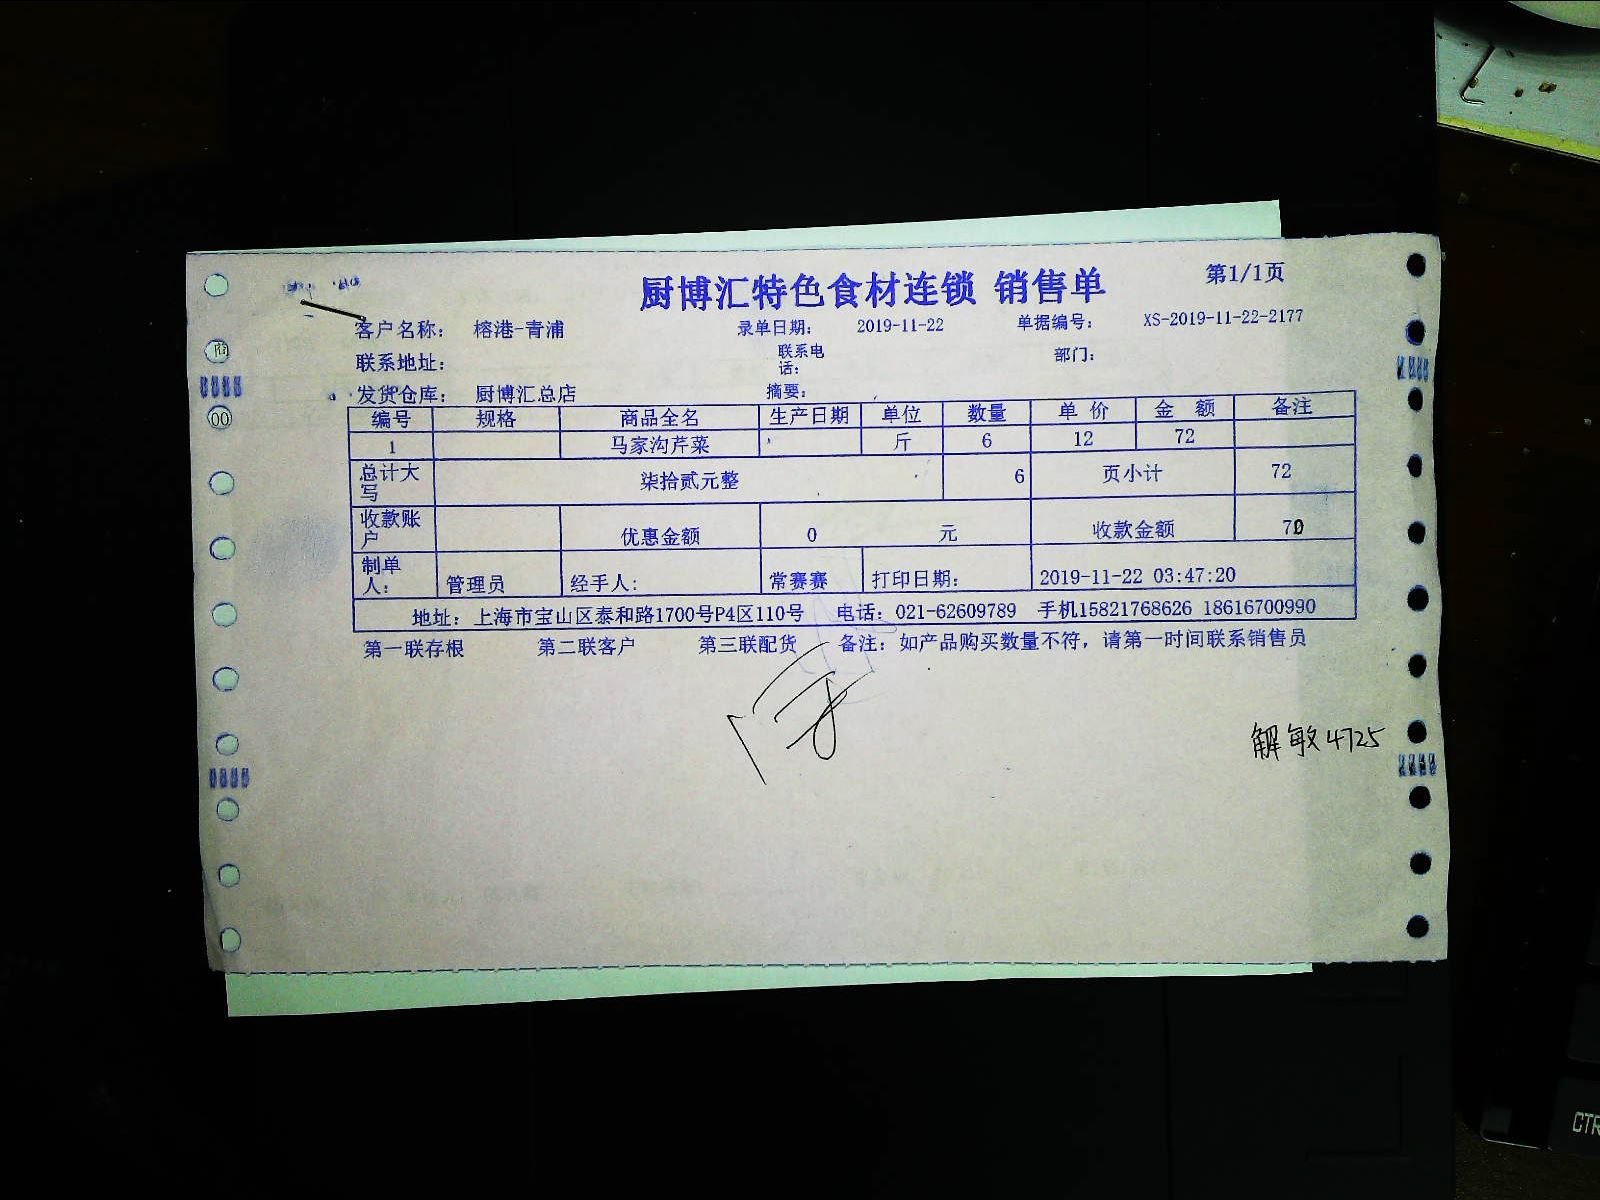 厨博汇特色食材连锁 销售单 第1/1页
客户名称： 榕港-青浦 录单日期： 2019-11-22 单据编号： XS-2019-11-22-2177
联系地址： 联系电话： 部门：
发货仓库： 厨博汇总店 摘要：
编号 规格 商品全名 生产日期 单位 数量 单价 金额 备注
1 马家沟芹菜 斤 6 12 72
总计大写 柒拾贰元整 6 页小计 72
收款账户 优惠金额 0 元 收款金额 70
制单人： 管理员 经手人： 常赛赛 打印日期： 2019-11-22 03:47:20
地址：上海市宝山区泰和路1700号P4区110号 电话：021-62609789 手机15821768626 18616700990
第一联存根 第二联客户 第三联配货 备注：如产品购买数量不符，请第一时间联系销售员
解敏4725
CTR